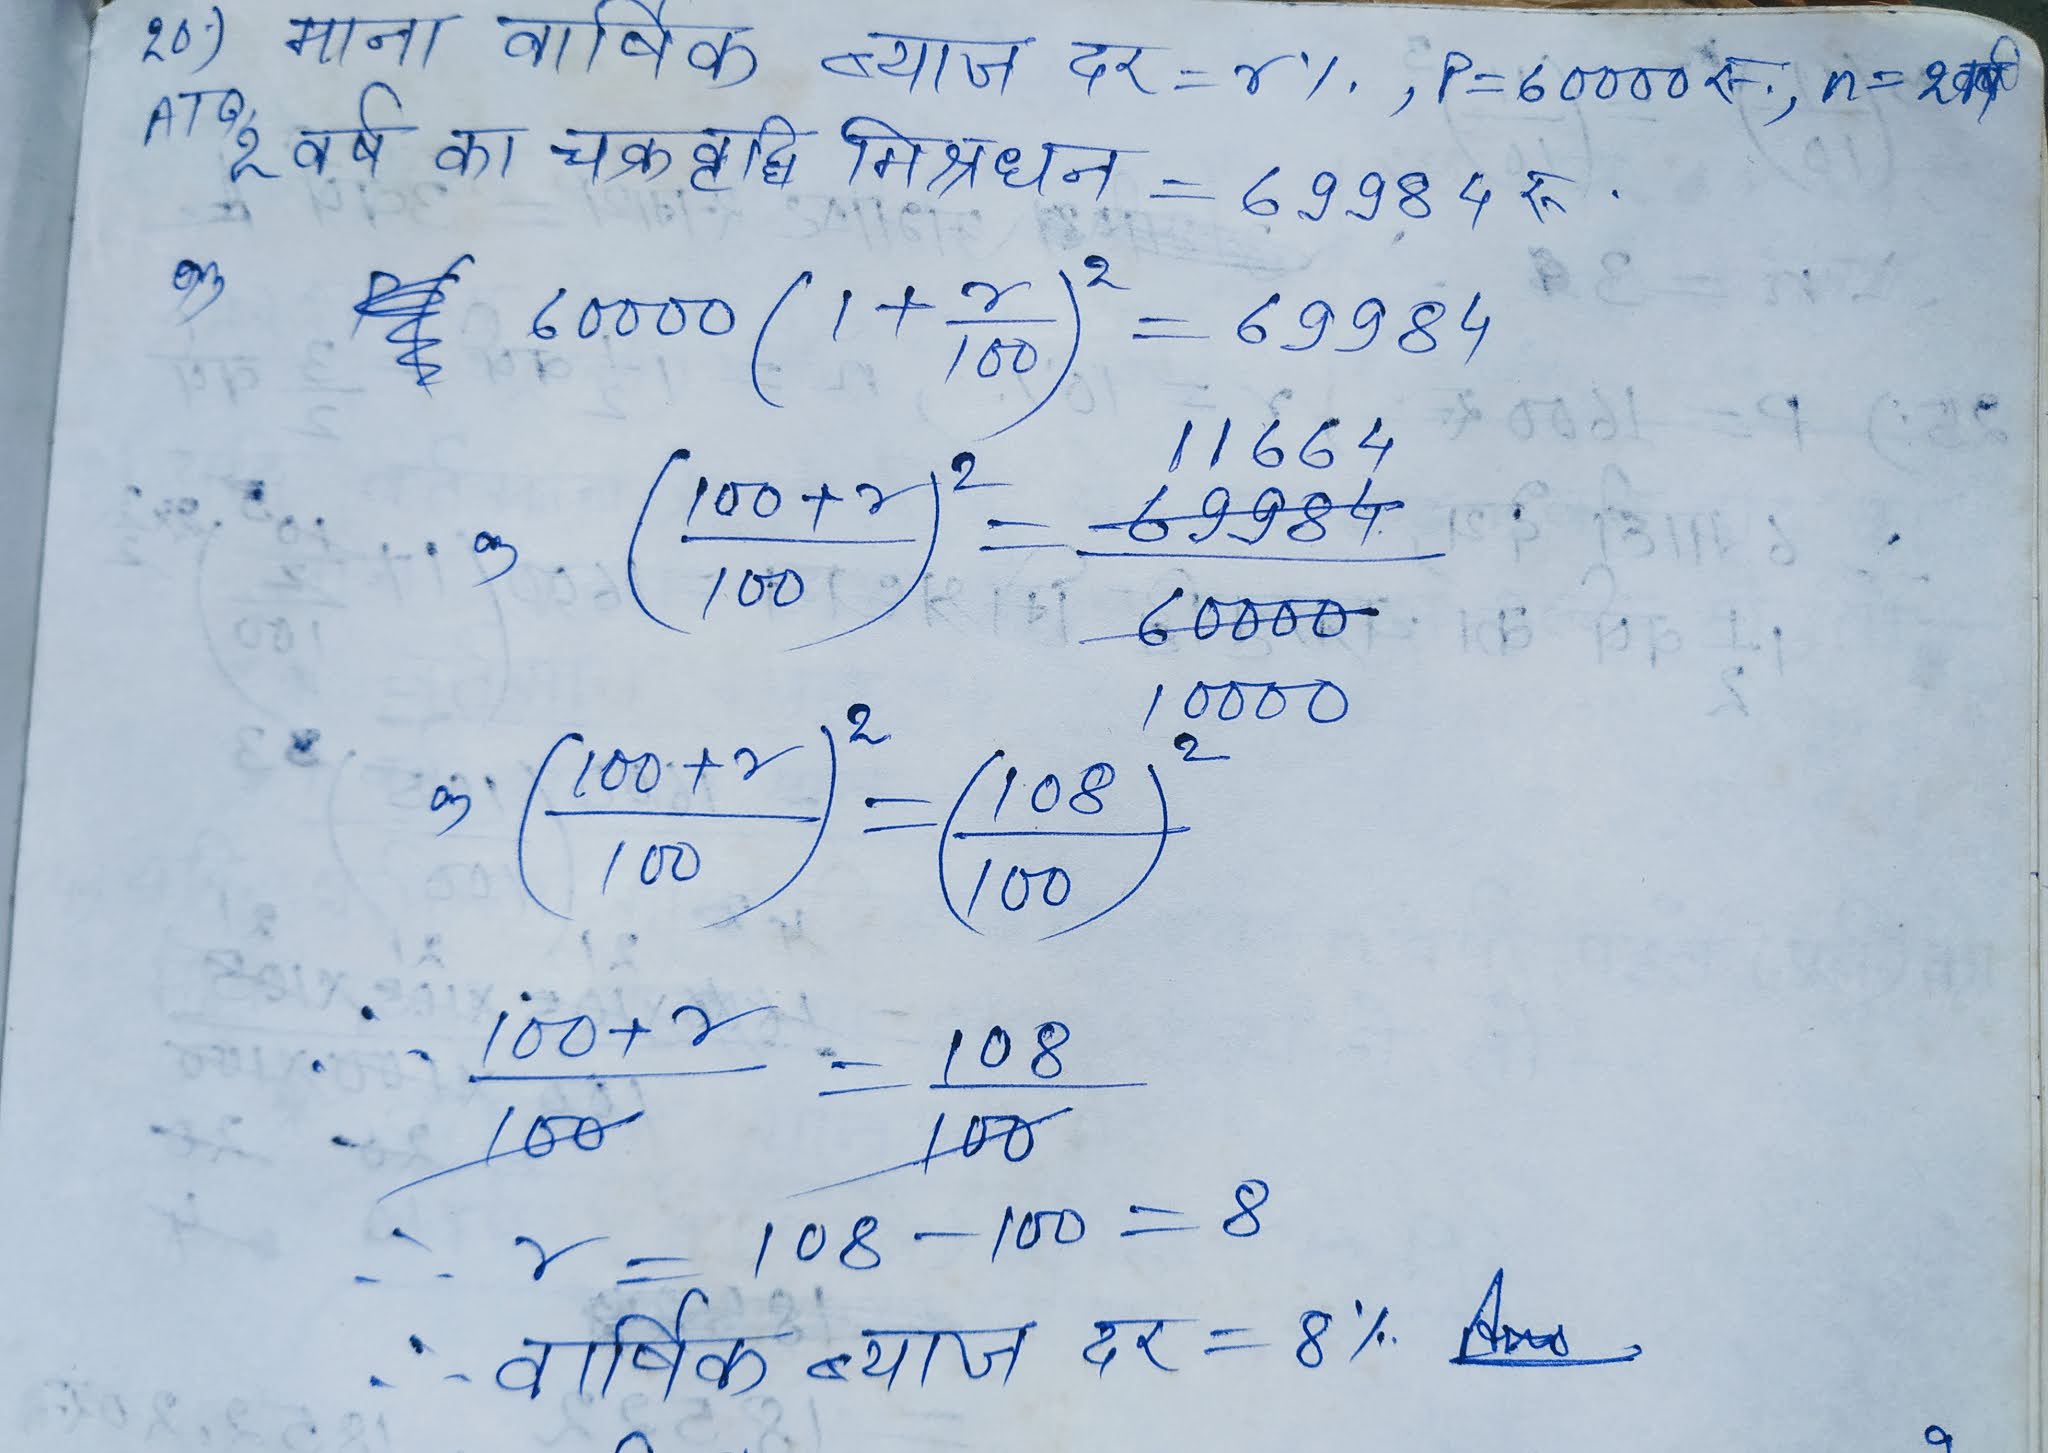 20.) माना वार्षिक ब्याज दर = r%., P = 60000 रू., n = 2 वर्ष
ATQ, 2 वर्ष का चक्रवृद्धि मिश्रधन = 69984 रू.
या 60000 (1 + r/100)^2 = 69984
11664
या ((100 + r)/100)^2 = 69984/60000
10000
या ((100 + r)/100)^2 = (108/100)^2
∴ (100 + r)/100 = 108/100
∴ r = 108 - 100 = 8
∴ वार्षिक ब्याज दर = 8%. Ans